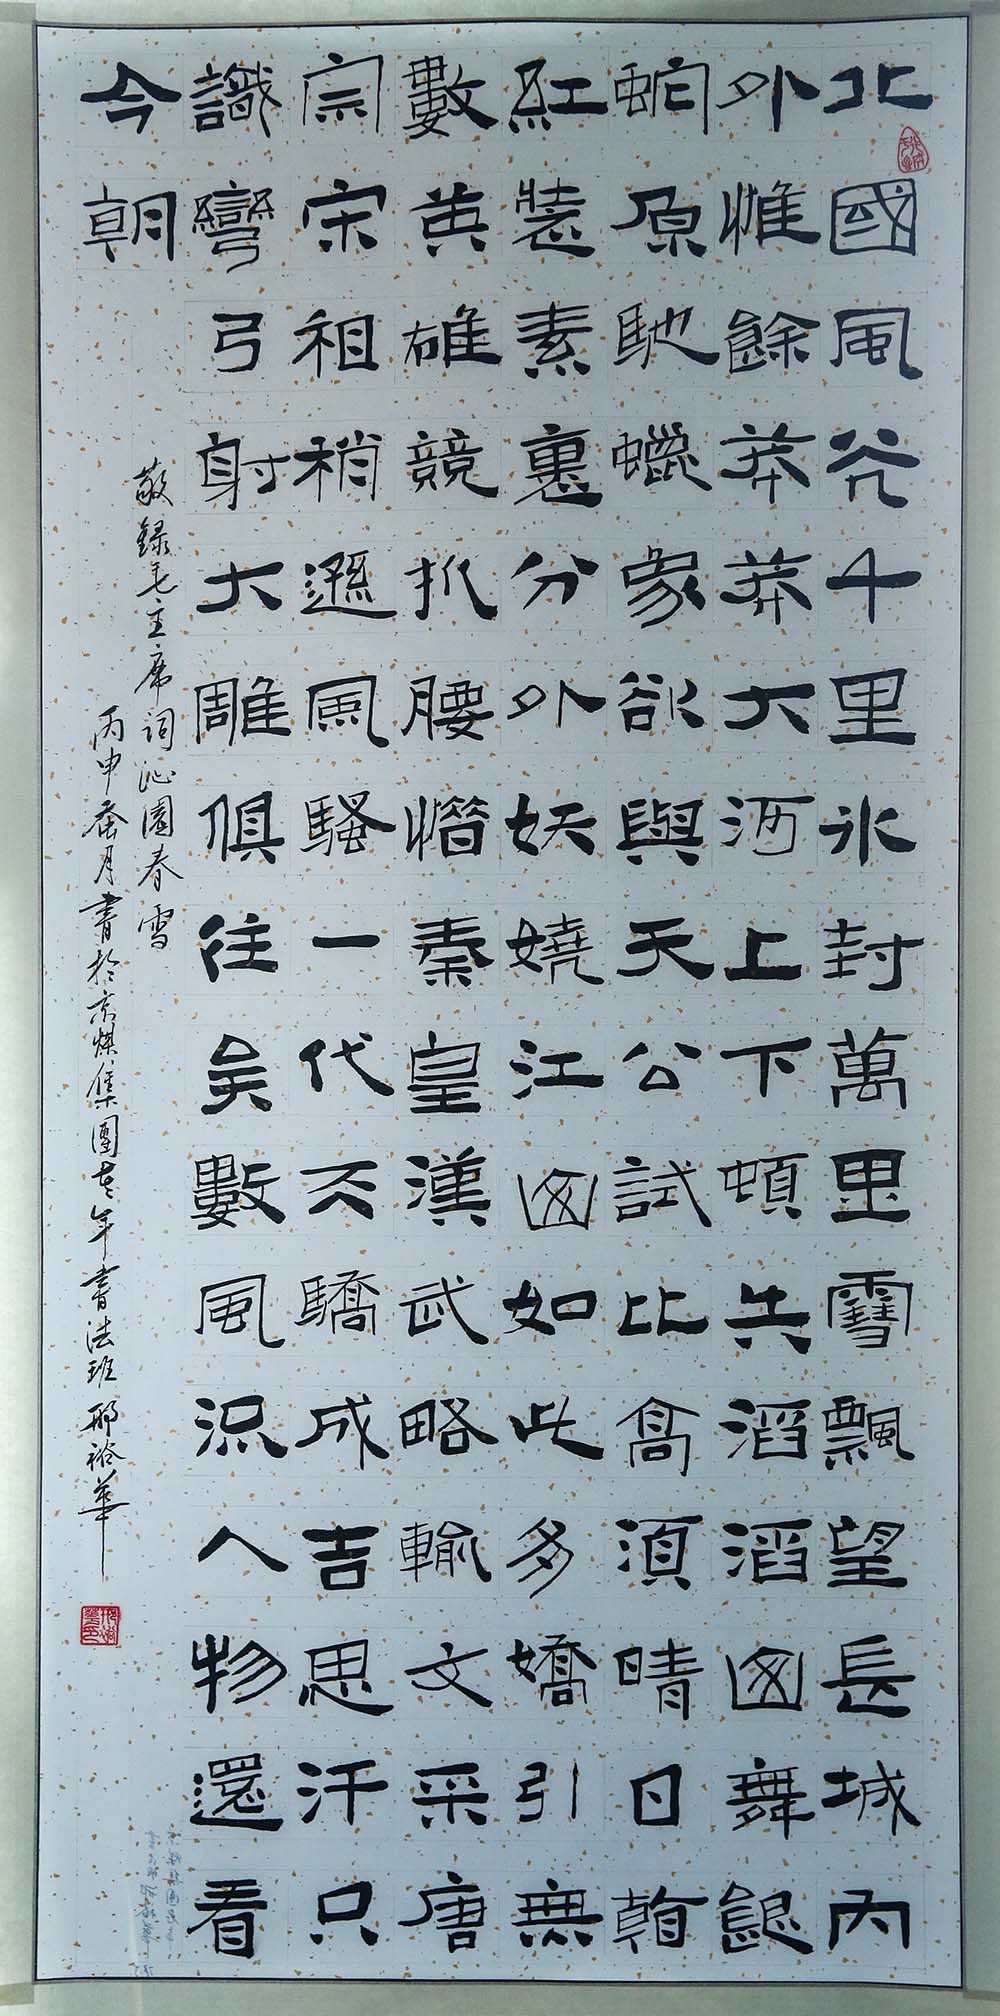 北國風光千里冰封萬里雪飄望長城內
外惟餘莽莽大河上下頓失滔滔山舞銀
蛇原馳蠟象欲與天公試比高須晴日看
紅裝素裹分外妖嬈江山如此多嬌引無
數英雄競折腰惜秦皇漢武略輸文采唐
宗宋祖稍遜風騷一代天驕成吉思汗只
識彎弓射大雕俱往矣數風流人物還看
今朝
敬録毛主席詞沁園春雪
丙申蚕月書於京煤集團老年書法班邢裕華